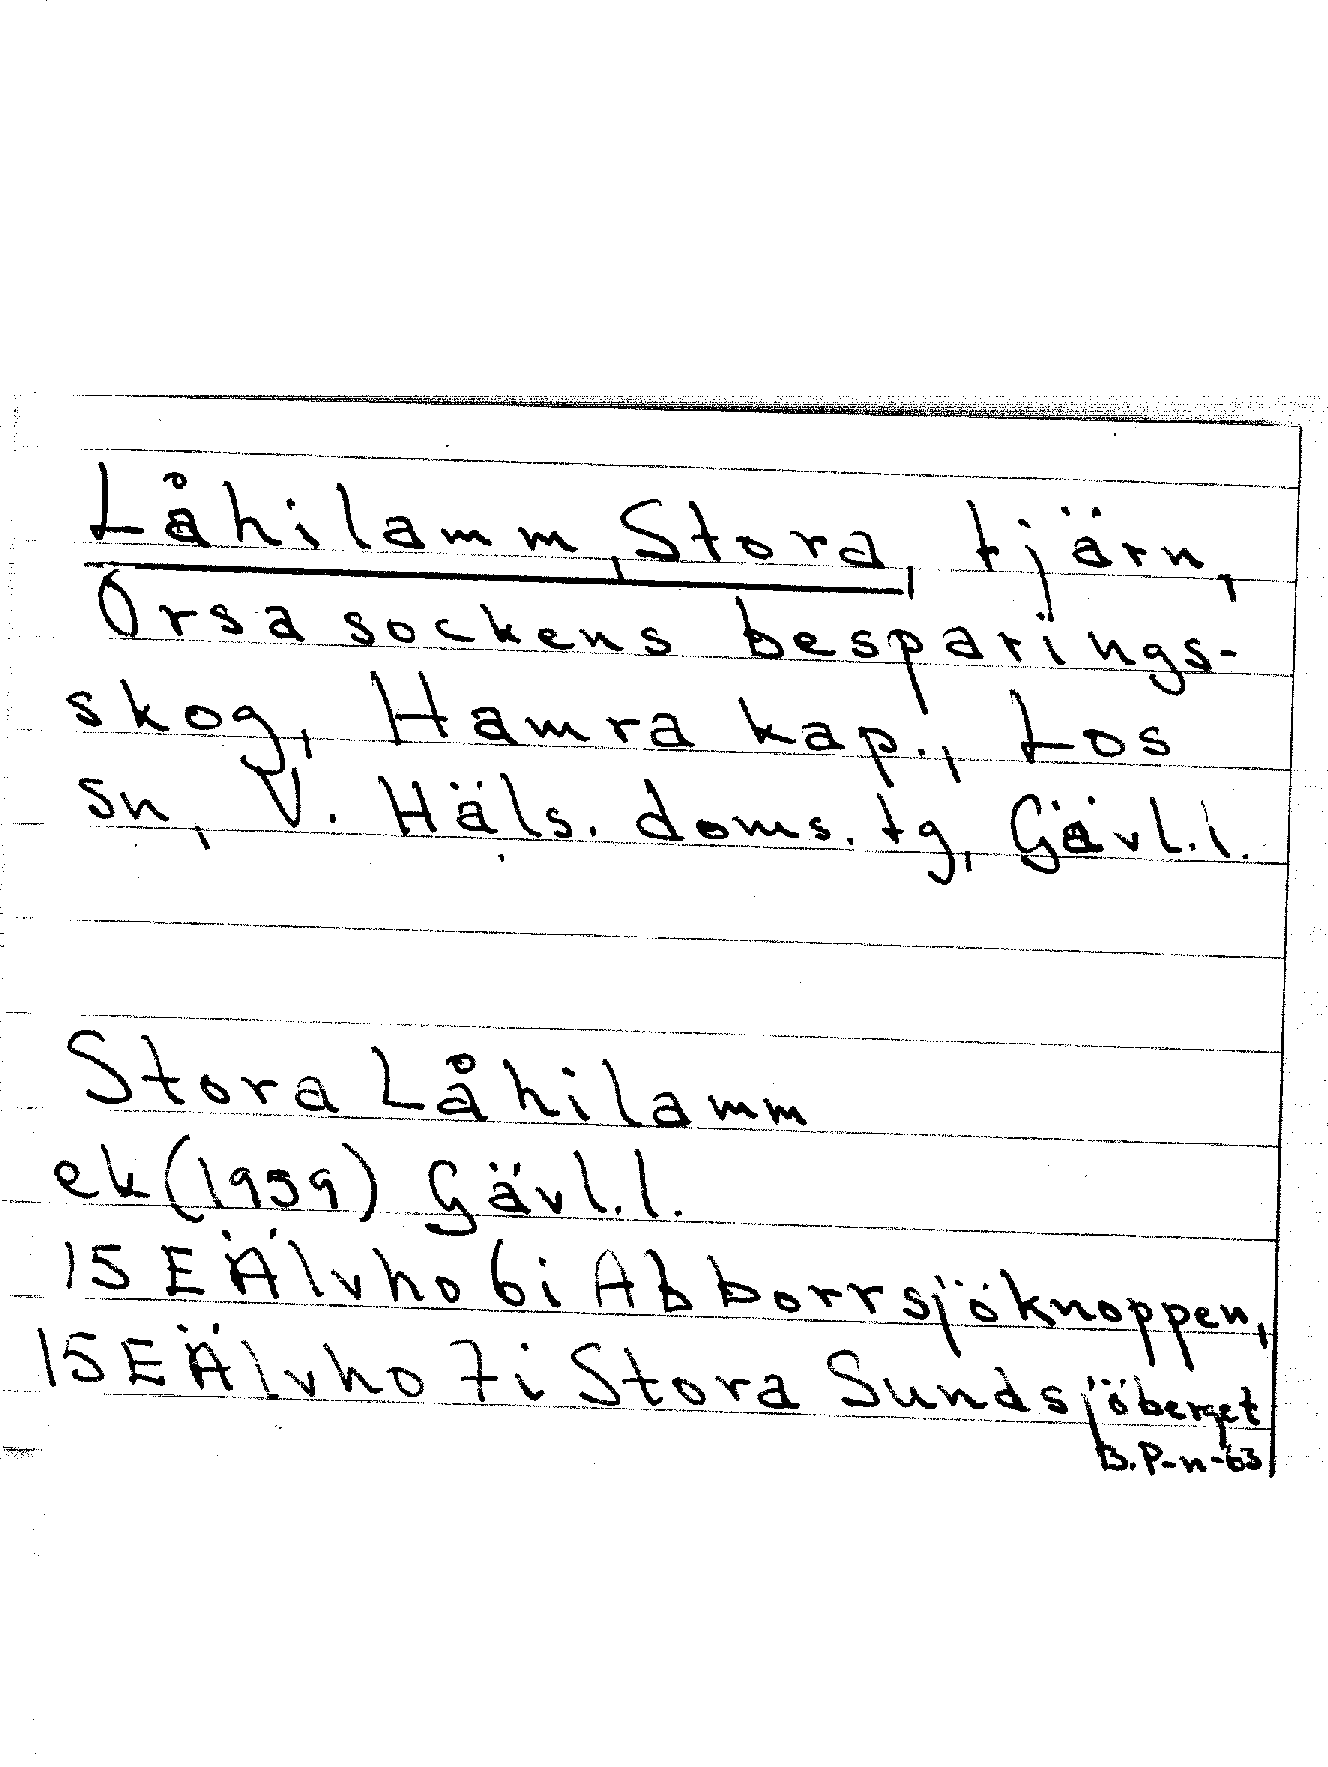 Låhilamm, Stora, tjärn,
Orsa sockens besparings-
skog, Hamra kap., Los
sn, V. Häls. doms. tg, Gävl. l.
Stora Låhilamm
ek (1959) Gävl. l.
15 E Älvho 6i Abborrsjöknoppen,
15 E Älvho 7i Stora Sundsjöberget
B. P-n-63